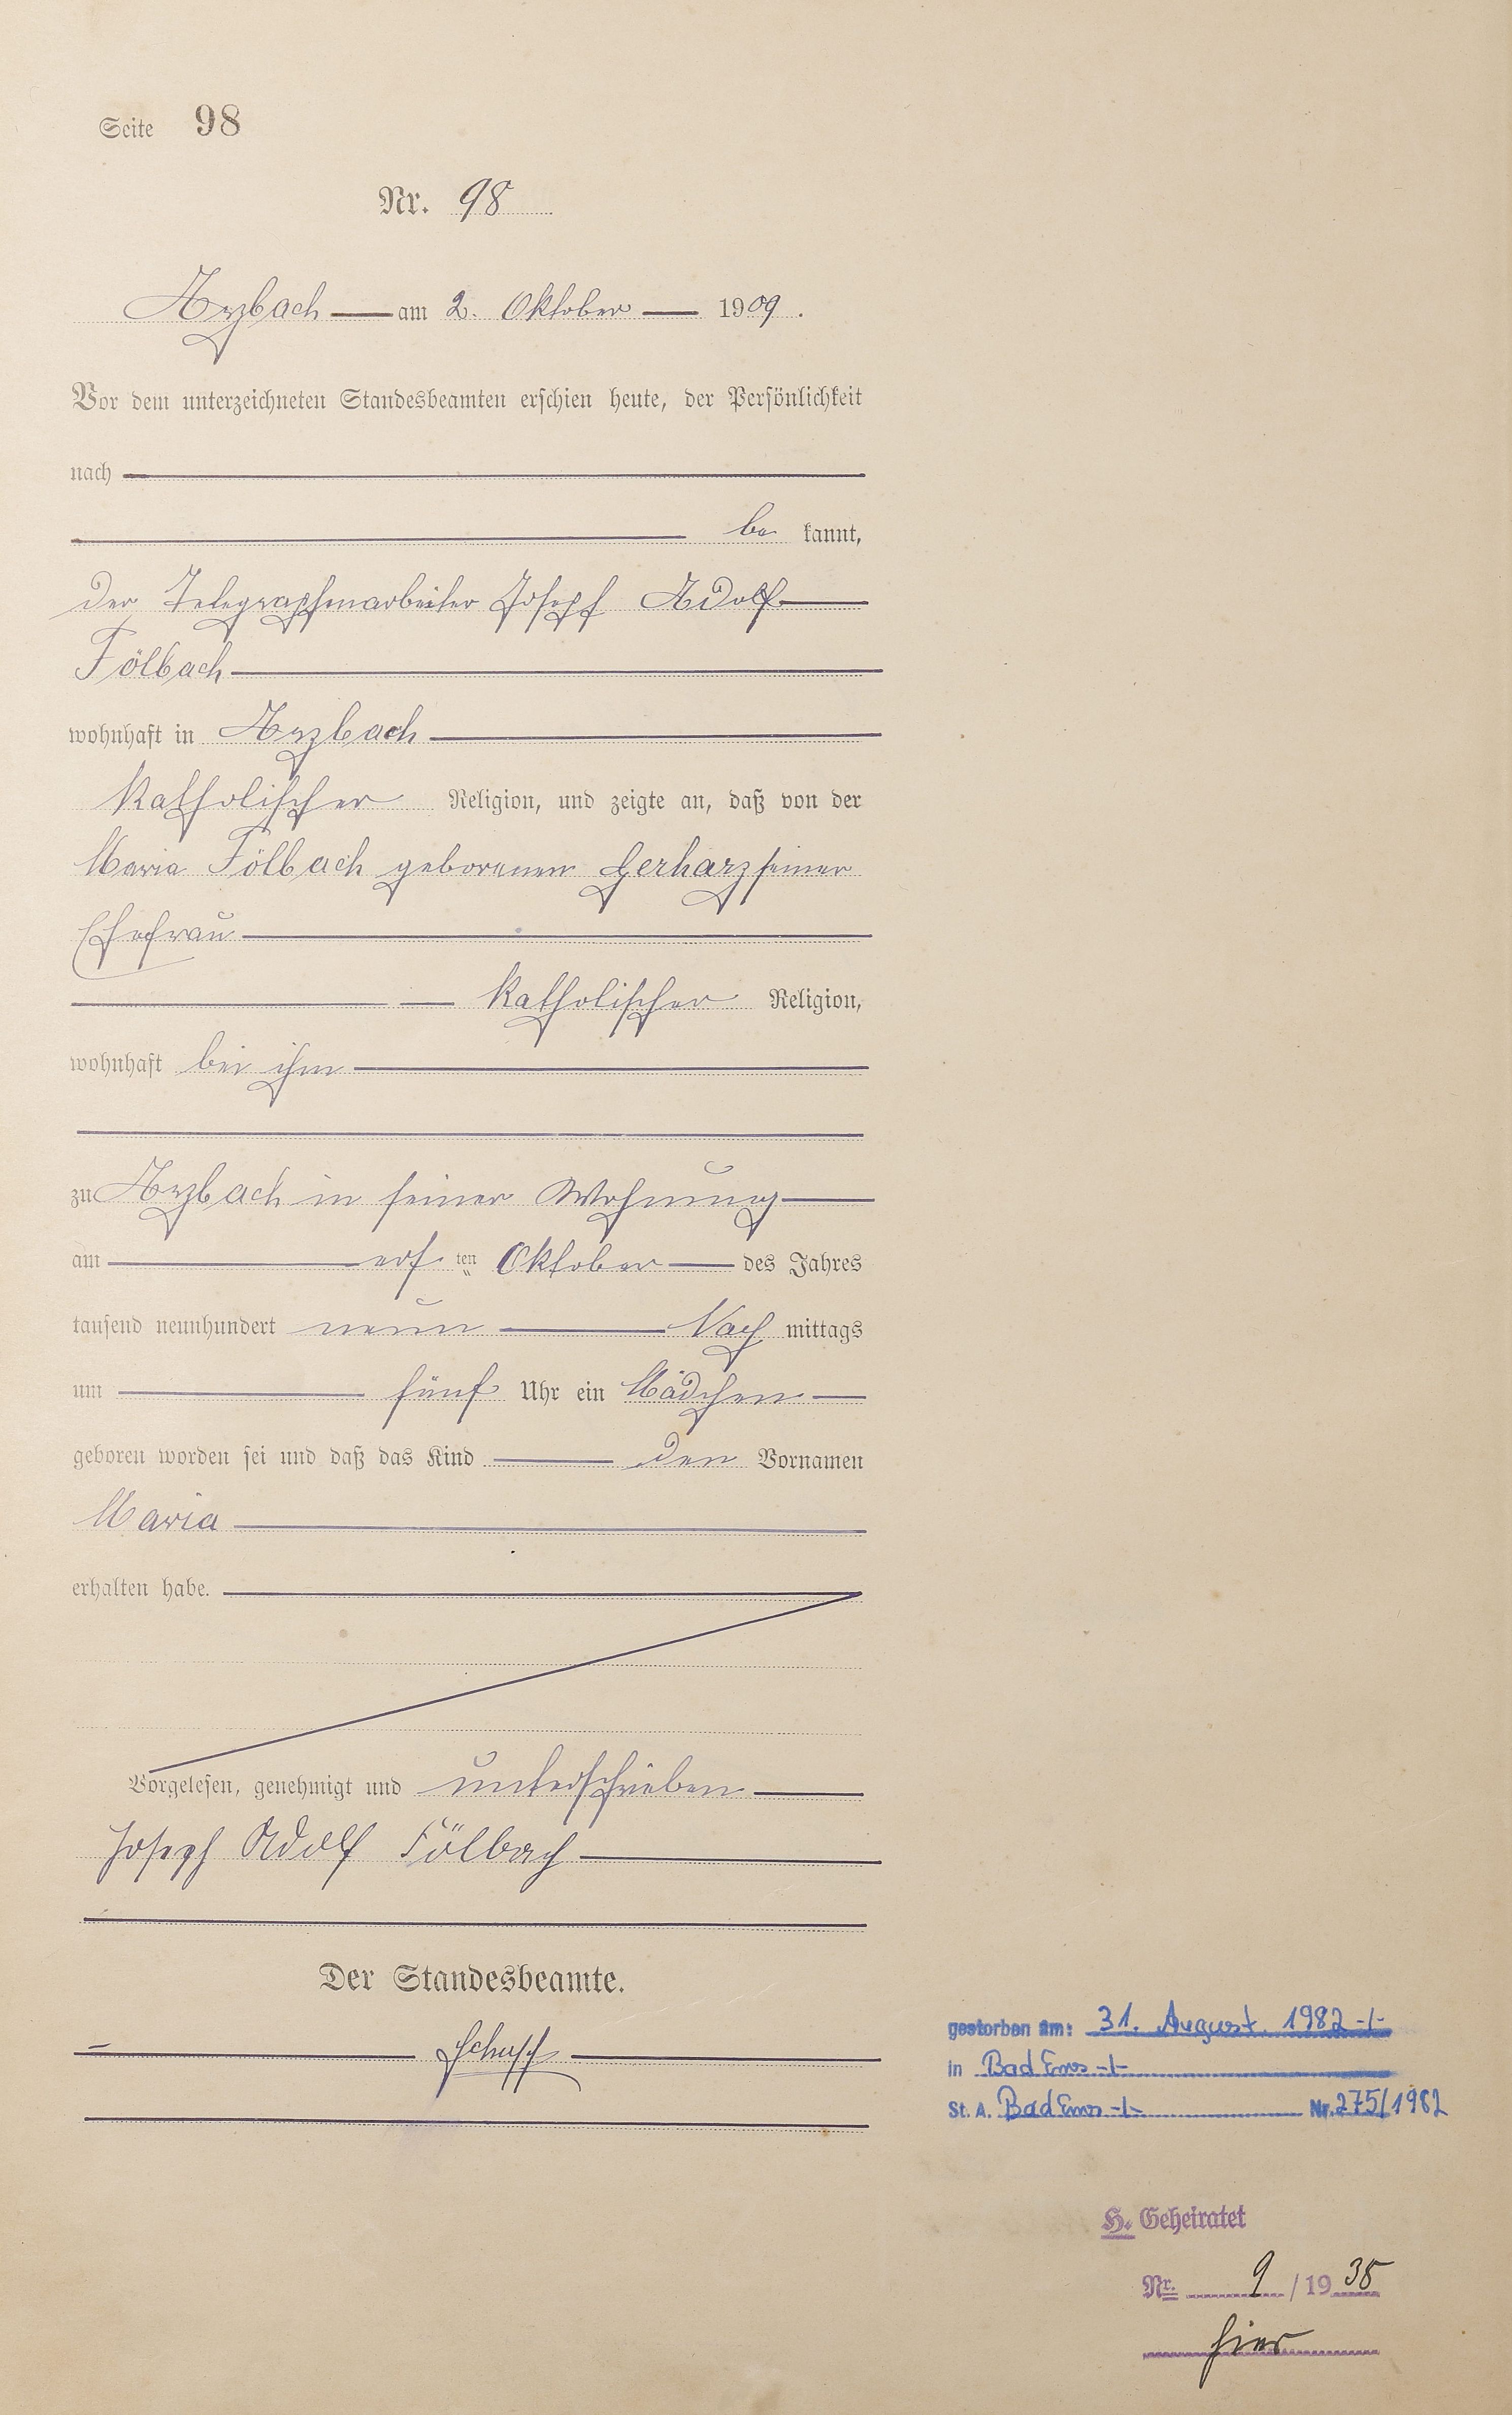 Seite 98
Nr. 98
Arzbach am 2. Oktober 1909.
Vor dem unterzeichneten Standesbeamten erschien heute, der Persönlichkeit
nach
be kannt,
der Telegraphenarbeiter Joseph Adolf
Fölbach
wohnhaft in Arzbach
katholischer Religion, und zeigte an, daß von der
Maria Fölbach geborenen Gerharz seiner
Ehefrau
katholischer Religion,
wohnhaft bei ihm
zu Arzbach in seiner Wohnung
am ersten Oktober des Jahres
tausend neunhundert neun Nach mittags
um fünf Uhr ein Mädchen
geboren worden sei und daß das Kind den Vornamen
Maria
erhalten habe.
Vorgelesen, genehmigt und unterschrieben
Joseph Adolf Fölbach
Der Standesbeamte.
gestorben am: 31. August 1982
in Bad Ems
St. A. Bad Ems Nr. 275/1982
H. Geheiratet
Nr. 9 / 19 38
hier